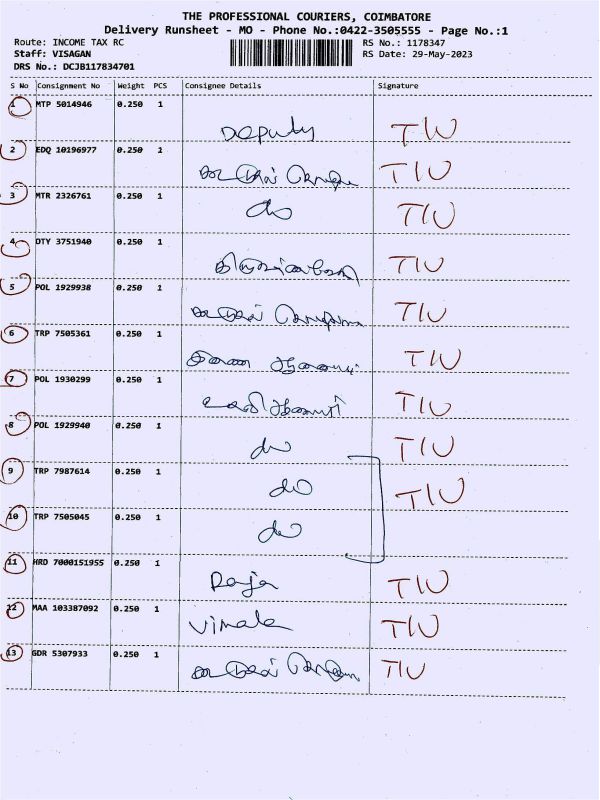 THE PROFESSIONAL COURIERS, COIMBATORE
Delivery Runsheet - MO - Phone No.:0422-3505555 - Page No.:1
Route: INCOME TAX RC RS No.: 1178347
Staff: VISAGAN RS Date: 29-May-2023
DRS No.: DCJB117834701
S No Consignment No Weight PCS Consignee Details Signature
1 MTP 5014946 0.250 1
Deputy TIU
2 EDQ 10196977 0.250 1
TIU
3 MTR 2326761 0.250 1
do TIU
4 OTY 3751940 0.250 1
TIU
5 POL 1929938 0.250 1
TIU
6 TRP 7505361 0.250 1
TIU
7 POL 1930299 0.250 1
TIU
8 POL 1929940 0.250 1
do TIU
9 TRP 7987614 0.250 1
do TIU
10 TRP 7505045 0.250 1
do
11 HRD 7000151955 0.250 1
Raja TIU
12 MAA 103387092 0.250 1
Vimala TIU
13 GDR 5307933 0.250 1
TIU